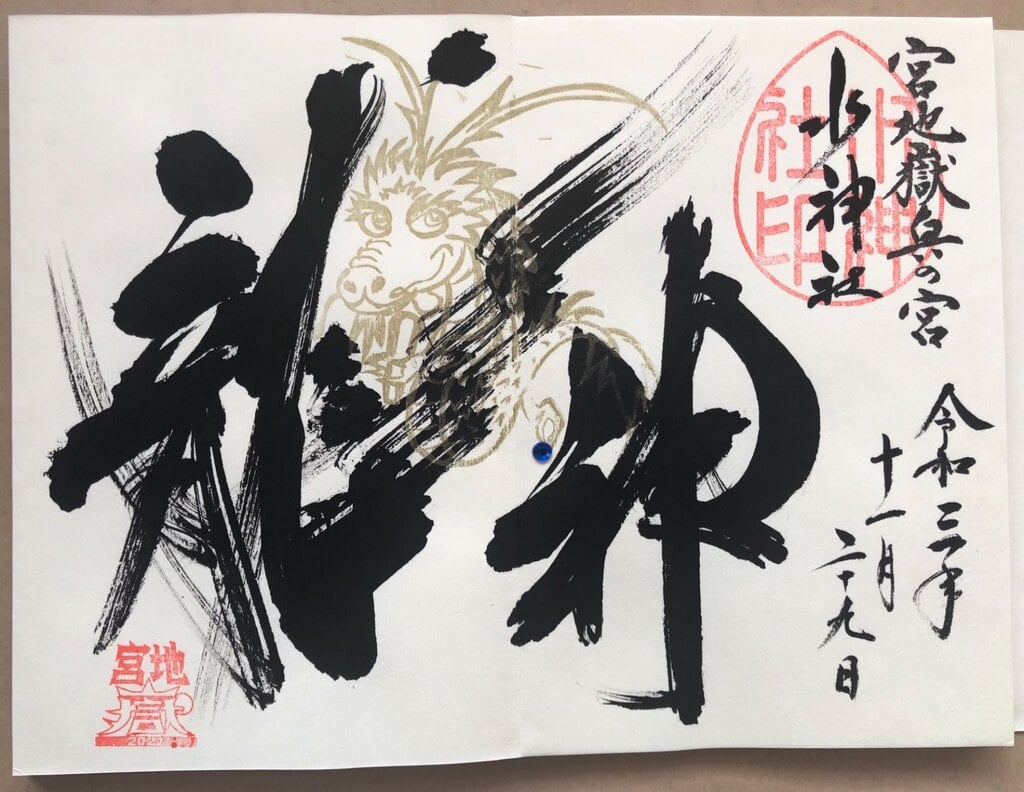 宮地嶽奥の宮
水神社
水神社印
令和三年
十一月
二十九日
神
宮地
嶽